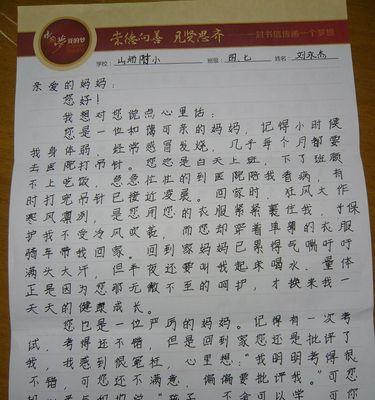 我的梦
崇德向善 见贤思齐
一封书信传递一个梦想
学校：山师附小 班级：四.七 姓名：刘永杰
亲爱的妈妈：
您好！
我想对您说点心里话：
您是一位和蔼可亲的妈妈，记得小时候
我身体弱，经常感冒发烧，几乎每个月都要
去医院打吊针。您总是白天上班，下了班顾
不上吃饭，急急忙忙的到医院陪我看病，有
时打完吊针已接近凌晨。回家时，狂风大作
寒风凛冽，是您用您的衣服紧紧裹住我，才保
护我不受冷风吹乾，而您却穿着单薄的衣服
骑车带我回家。回到家妈妈已累得气喘吁吁
满头大汗，但半夜还要叫我起床喝水、量体
正是因为您那无微不至的呵护，才换来我一
天天的健康成长。
您也是一位严厉的妈妈。记得有一次考
试，考得还不错，但是回到家您还是批评了
我，我感到很冤枉，心里想：“我明明考得很
不错，可您还不满意，偏偏要批评我。”可您